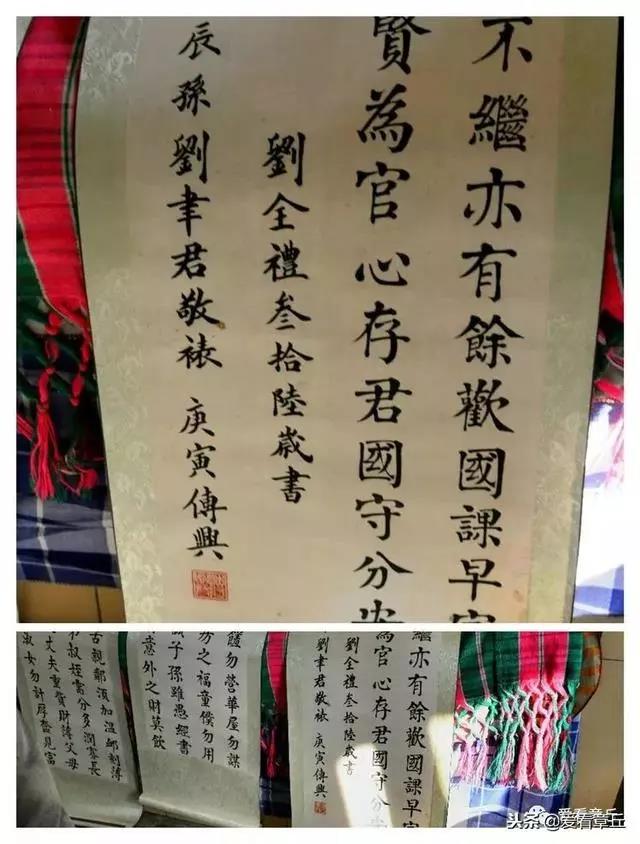 不繼亦有餘歡國課早
賢為官心存君國守分
劉全禮叁拾陸歲書
辰孫劉聿君敬裱 庚寅傳興
繼亦有餘歡國課早
為官心存君國守分
劉全禮叁拾陸歲書
劉聿君敬裱 庚寅傳興
饈勿營華屋勿謀
房之福童僕勿用
誠子孫雖愚經書
意外之財莫飲
苦親鄰須加溫卹刻薄
叔姪需分多潤寡長
丈夫重貲財薄父母
淑女勿計厚奩見富
爱看章丘
头条@爱看章丘